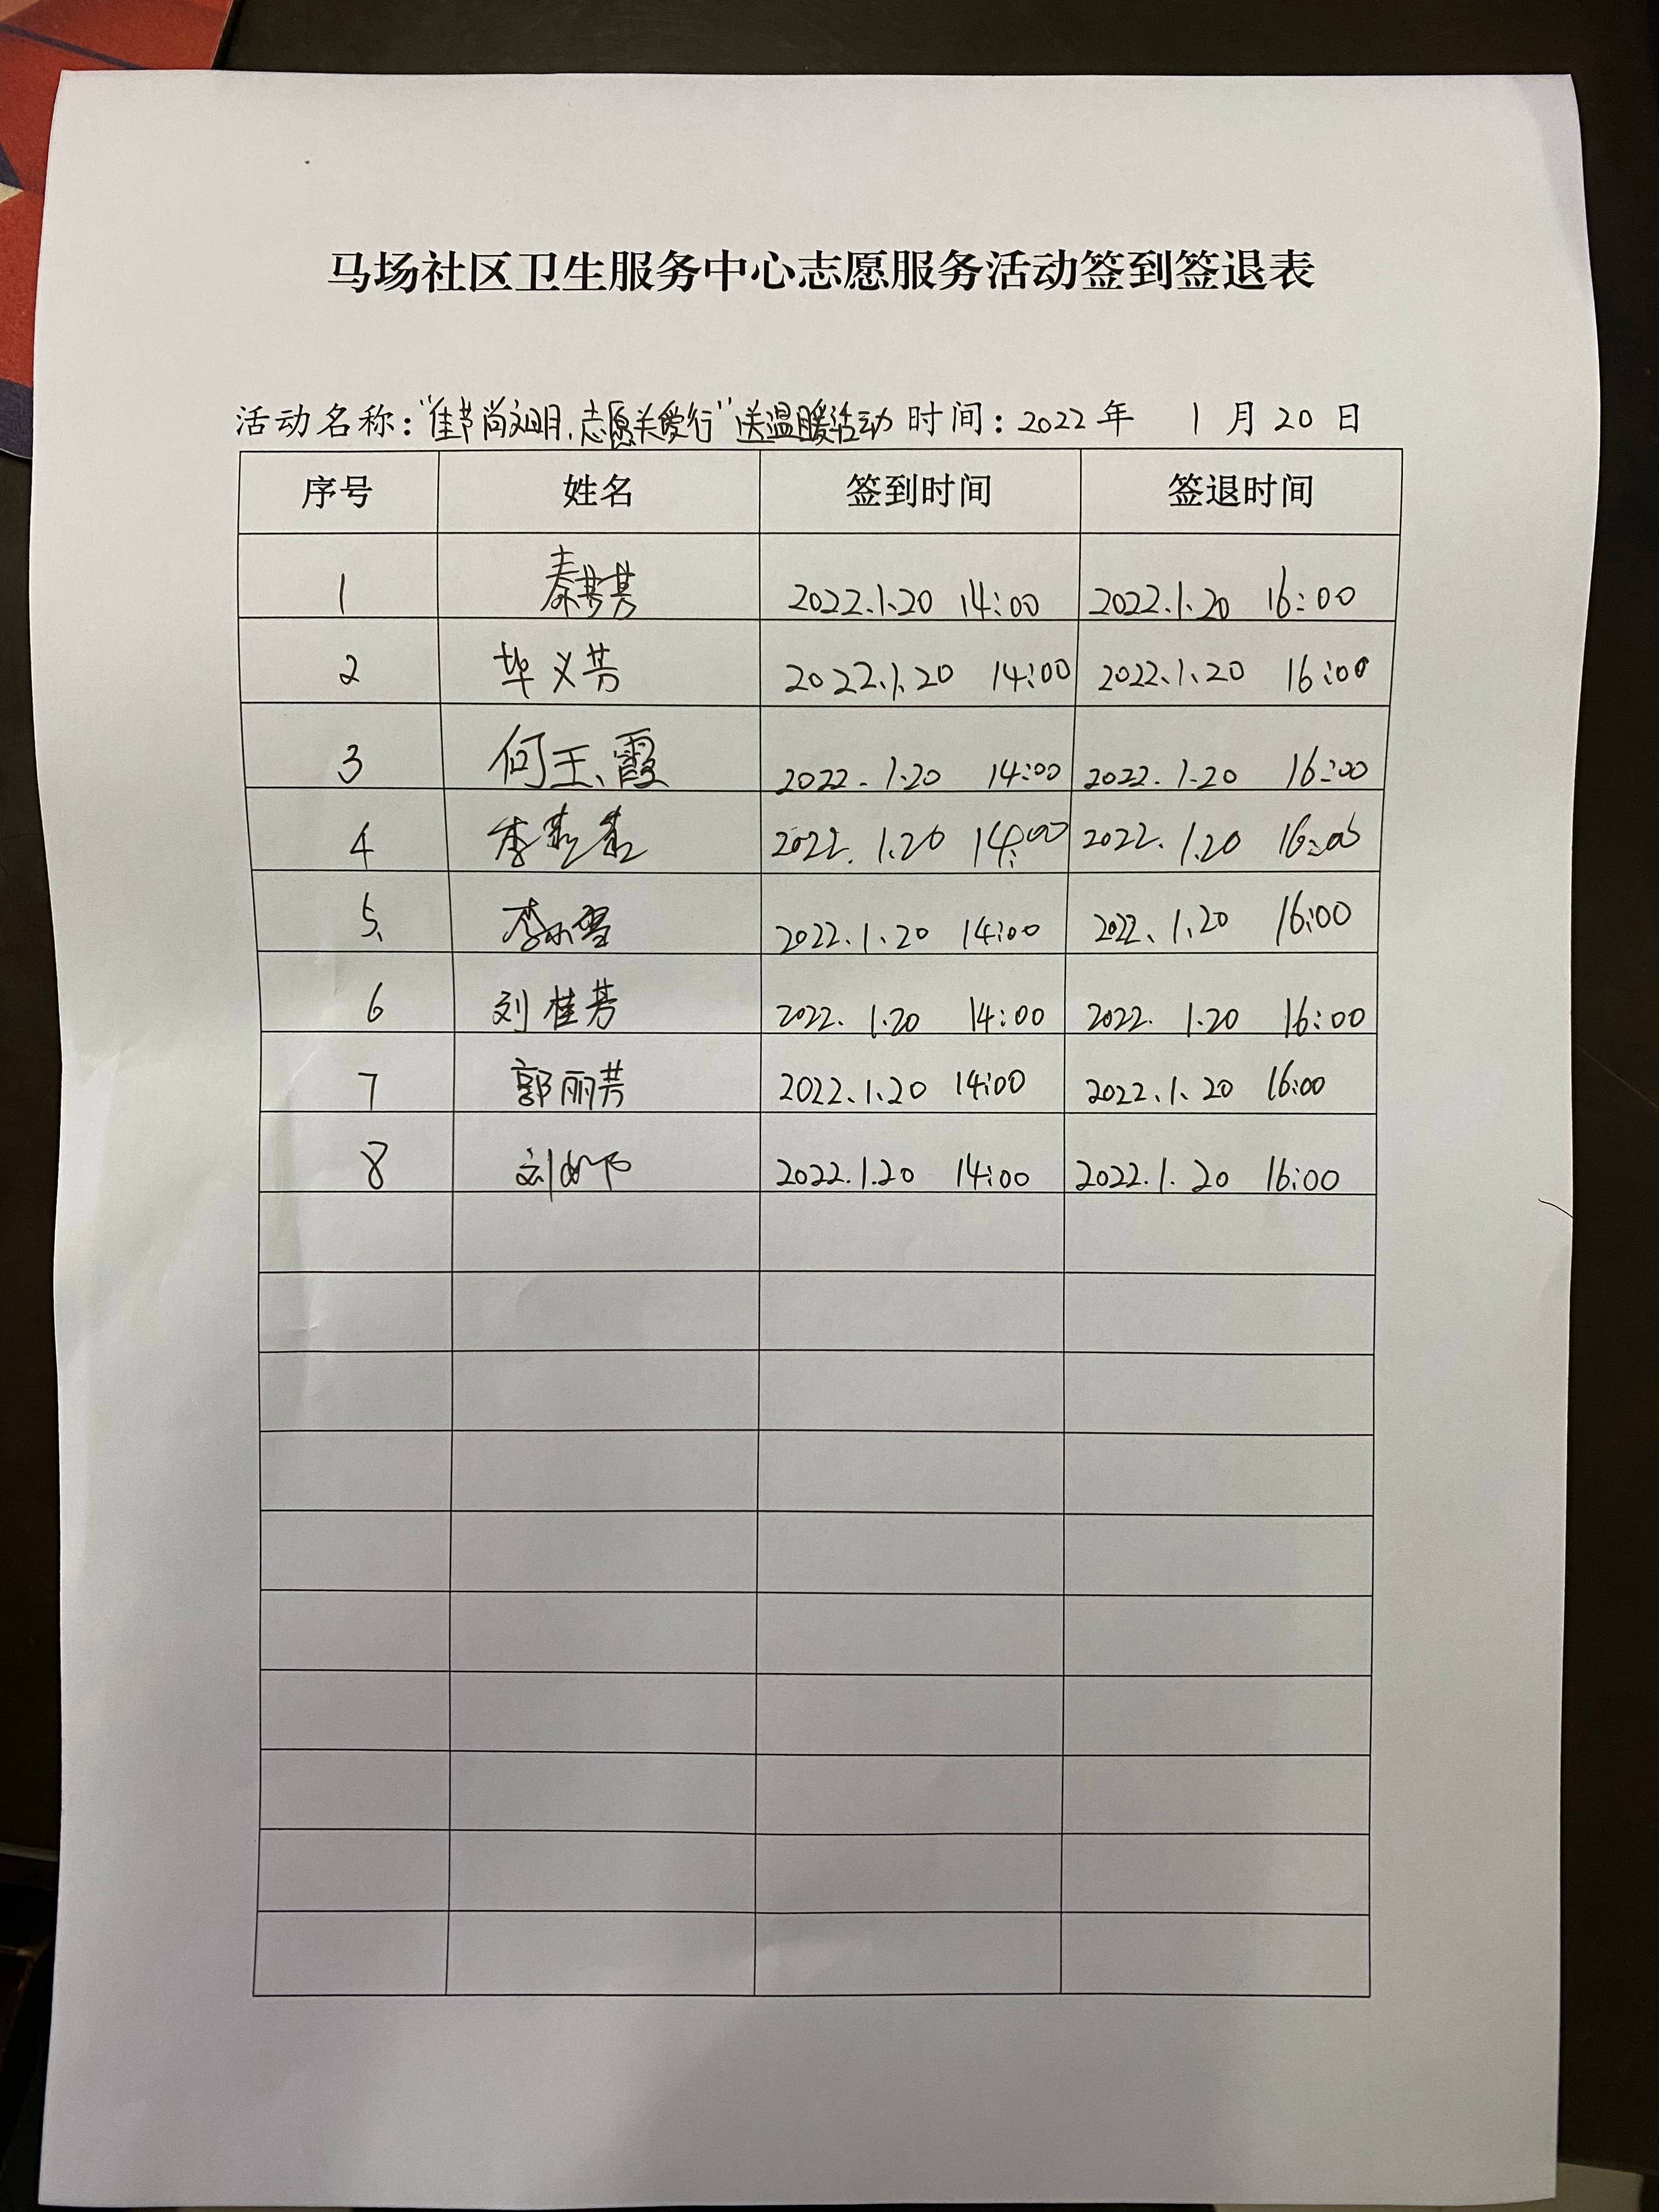 马场社区卫生服务中心志愿服务活动签到签退表
活动名称:“佳节尚文明,志愿关爱行”送温暖活动 时间:2022年 1月20日
序号 姓名 签到时间 签退时间
1 秦芳芳 2022.1.20 14:00 2022.1.20 16:00
2 毕义芳 2022.1.20 14:00 2022.1.20 16:00
3 何玉霞 2022.1.20 14:00 2022.1.20 16:00
4 李 2022.1.20 14:00 2022.1.20 16:00
5、 李小雪 2022.1.20 14:00 2022.1.20 16:00
6 刘桂芳 2022.1.20 14:00 2022.1.20 16:00
7 郭丽芳 2022.1.20 14:00 2022.1.20 16:00
8 刘 2022.1.20 14:00 2022.1.20 16:00